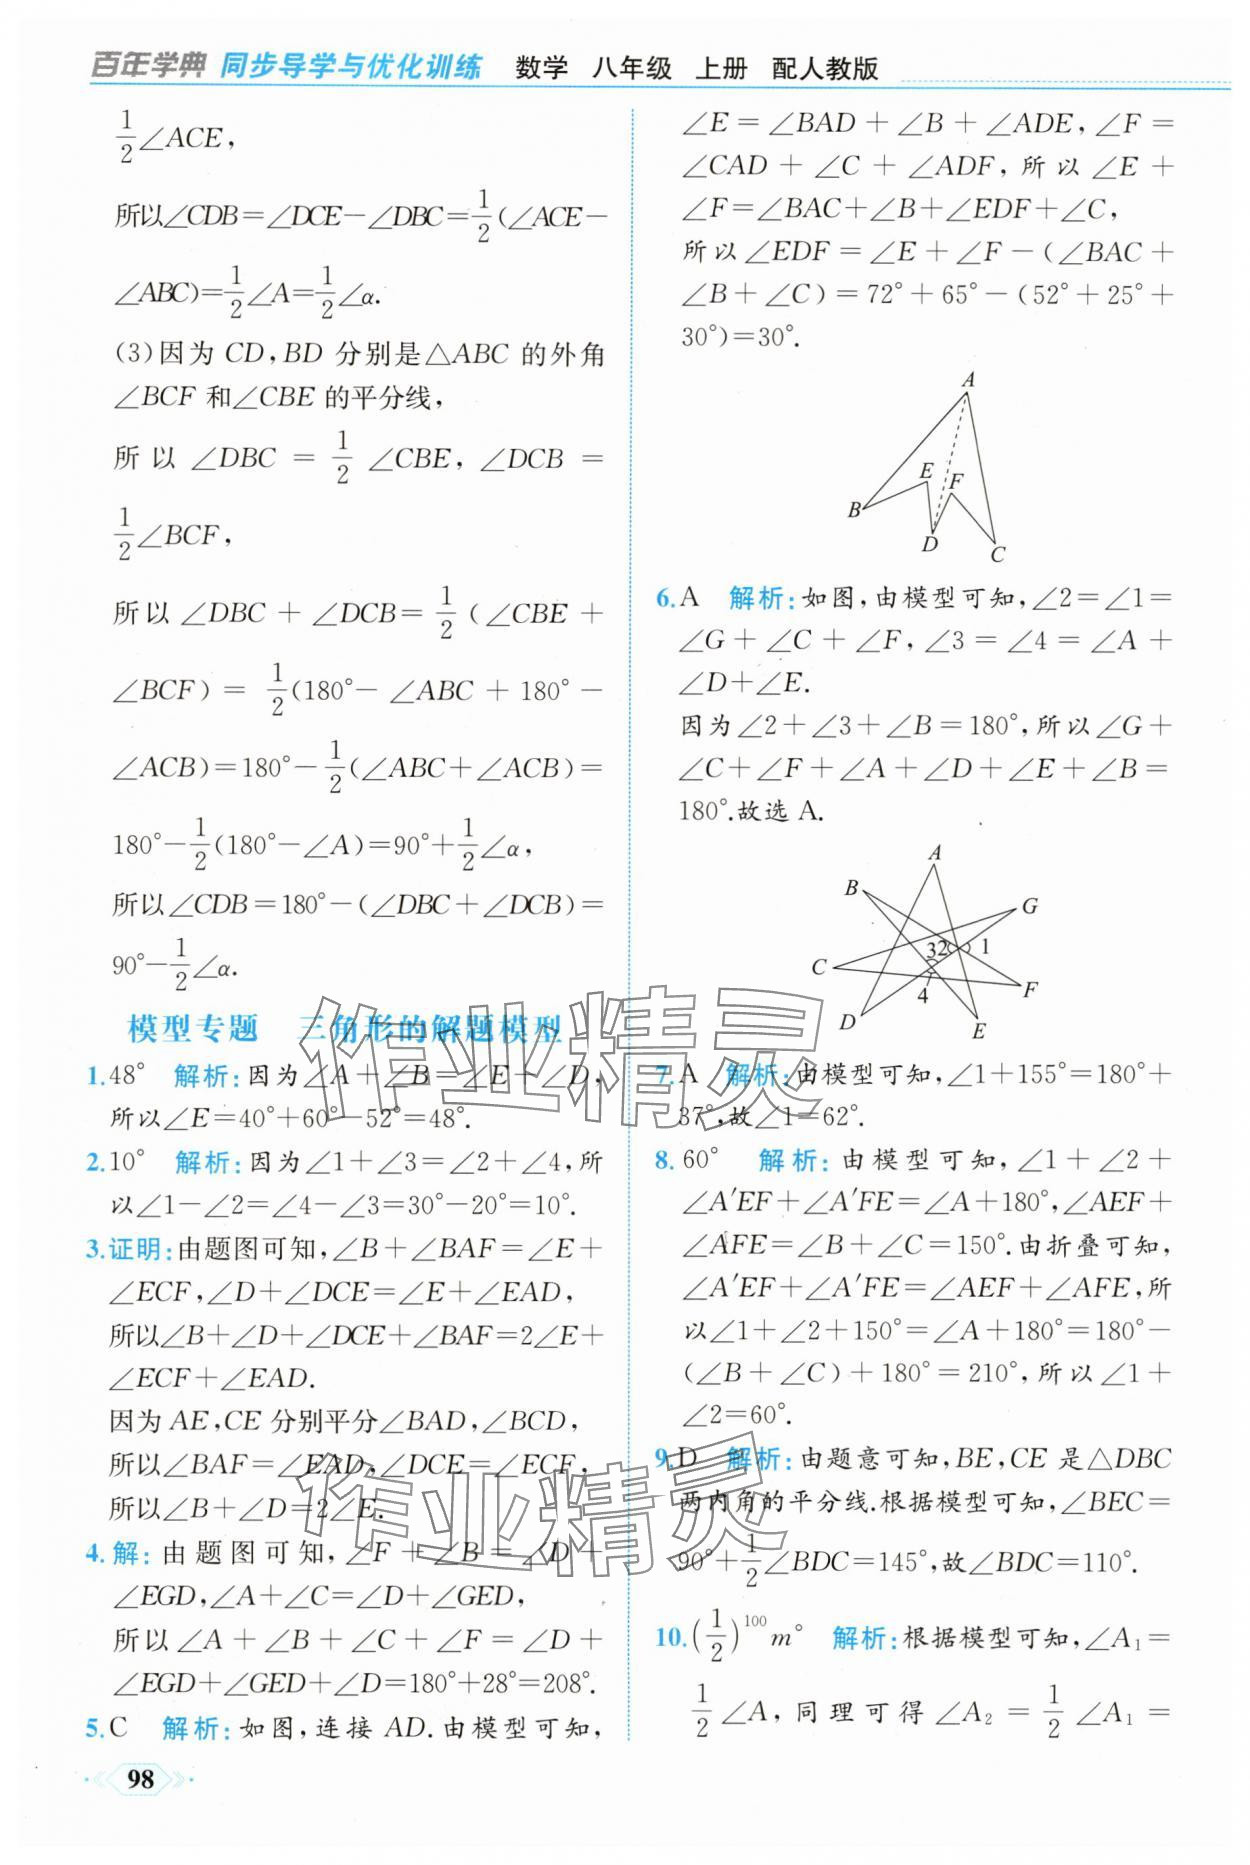 百年学典 同步导学与优化训练 数学 八年级 上册 配人教版
1/2∠ACE,
所以∠CDB=∠DCE-∠DBC=1/2(∠ACE-
∠ABC)=1/2∠A=1/2∠α.
(3)因为CD,BD分别是△ABC的外角
∠BCF和∠CBE的平分线,
所以∠DBC=1/2∠CBE,∠DCB=
1/2∠BCF,
所以∠DBC+∠DCB=1/2(∠CBE+
∠BCF)=1/2(180°-∠ABC+180°-
∠ACB)=180°-1/2(∠ABC+∠ACB)=
180°-1/2(180°-∠A)=90°+1/2∠α,
所以∠CDB=180°-(∠DBC+∠DCB)=
90°-1/2∠α.
模型专题 三角形的解题模型
1.48° 解析:因为∠A+∠B=∠E+∠D,
所以∠E=40°+60°-52°=48°.
2.10° 解析:因为∠1+∠3=∠2+∠4,所
以∠1-∠2=∠4-∠3=30°-20°=10°.
3.证明:由题图可知,∠B+∠BAF=∠E+
∠ECF,∠D+∠DCE=∠E+∠EAD,
所以∠B+∠D+∠DCE+∠BAF=2∠E+
∠ECF+∠EAD.
因为AE,CE分别平分∠BAD,∠BCD,
所以∠BAF=∠EAD,∠DCE=∠ECF,
所以∠B+∠D=2∠E.
4.解:由题图可知,∠F+∠B=∠D+
∠EGD,∠A+∠C=∠D+∠GED,
所以∠A+∠B+∠C+∠F=∠D+
∠EGD+∠GED+∠D=180°+28°=208°.
5.C 解析:如图,连接AD.由模型可知,
98
∠E=∠BAD+∠B+∠ADE,∠F=
∠CAD+∠C+∠ADF,所以∠E+
∠F=∠BAC+∠B+∠EDF+∠C,
所以∠EDF=∠E+∠F-(∠BAC+
∠B+∠C)=72°+65°-(52°+25°+
30°)=30°.
A
E
F
B
D
C
6.A 解析:如图,由模型可知,∠2=∠1=
∠G+∠C+∠F,∠3=∠4=∠A+
∠D+∠E.
因为∠2+∠3+∠B=180°,所以∠G+
∠C+∠F+∠A+∠D+∠E+∠B=
180°.故选A.
A
B
G
32
1
C
4
F
D
E
7.A 解析:由模型可知,∠1+155°=180°+
37°,故∠1=62°.
8.60° 解析:由模型可知,∠1+∠2+
∠A′EF+∠A′FE=∠A+180°,∠AEF+
∠AFE=∠B+∠C=150°.由折叠可知,
∠A′EF+∠A′FE=∠AEF+∠AFE,所
以∠1+∠2+150°=∠A+180°=180°-
(∠B+∠C)+180°=210°,所以∠1+
∠2=60°.
9.D 解析:由题意可知,BE,CE是△DBC
两内角的平分线.根据模型可知,∠BEC=
90°+1/2∠BDC=145°,故∠BDC=110°.
10.(1/2)^100 m° 解析:根据模型可知,∠A₁=
1/2∠A,同理可得∠A₂=1/2∠A₁=
作业精灵
作业精灵